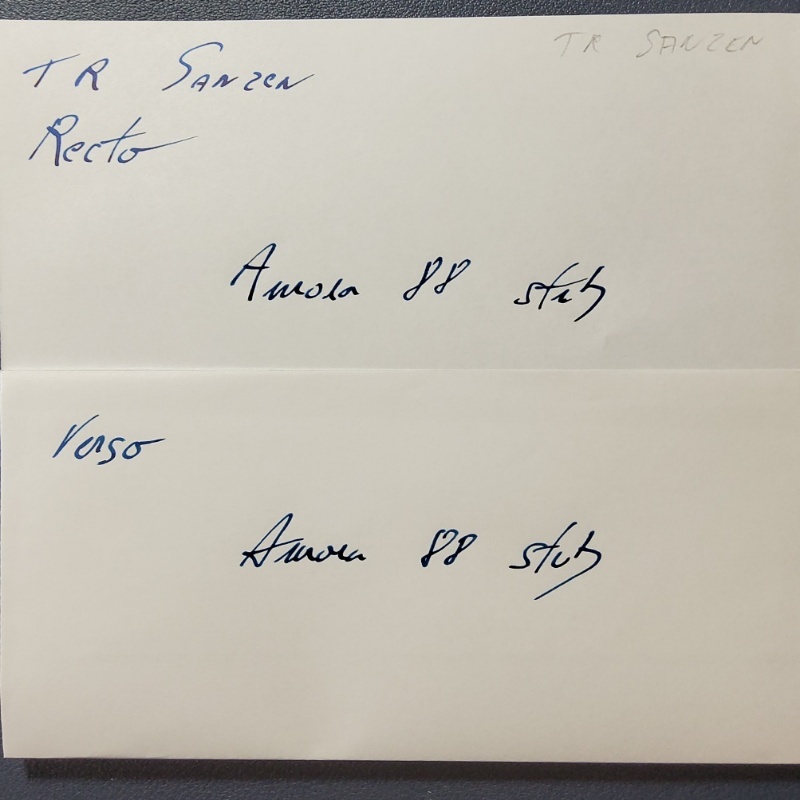 TR SANZEN
TR SANZEN
Recto
Aurora 88 stub
Verso
Aurora 88 stub